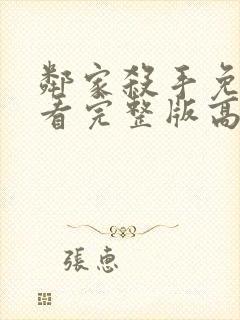 鄰家殺手免
看完整版高
張惠